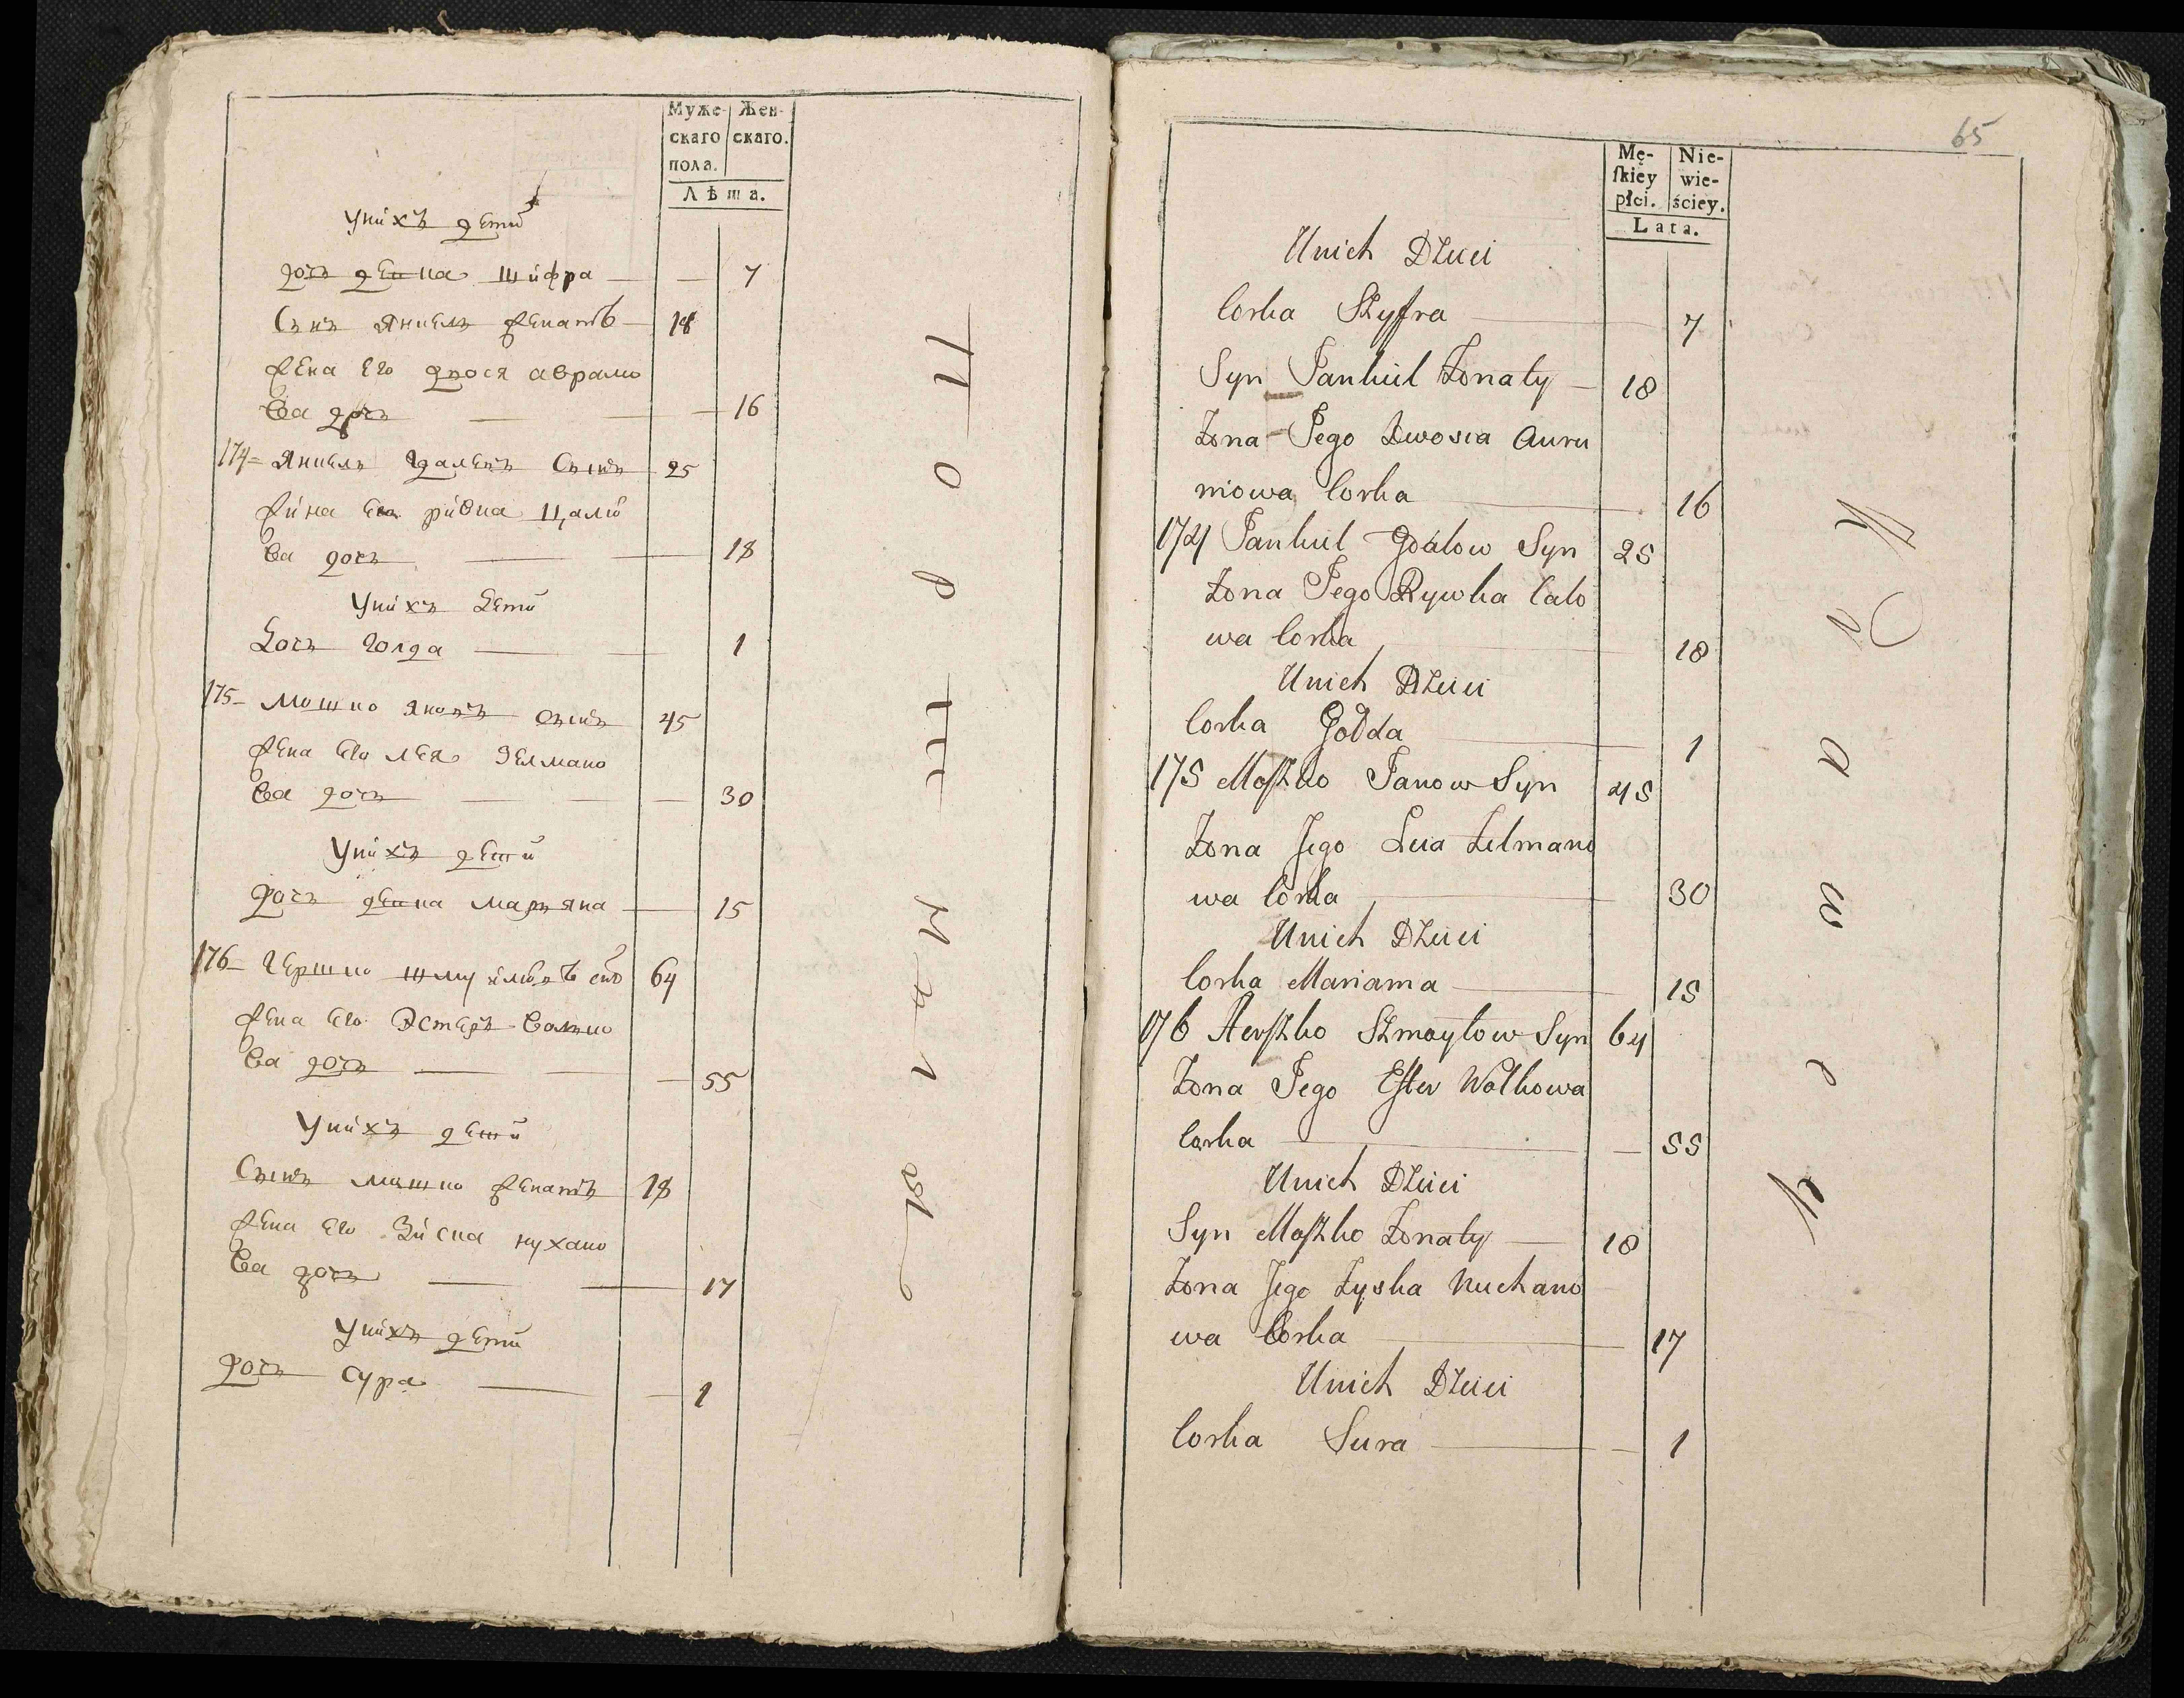 Муже- Жен-
скаго скаго.
пола.
Лѣта.
Унихъ дети
дочь девка шифра — — 7
Сынъ янкель женатъ — 18
жена его двося аврамо
ва дочь — — — 16
174 = янкель гдалевъ Сынъ 25
жина его ривка цалю
ва дочь — — 18
Унихъ Дети
Дочь голда — — 1
175 — мошко яновъ сынъ 45
жена его лея зелмано
ва дочь — — — — 30
Унихъ дети
дочь девка марьяна — 15
176 — гершко шмуйловъ снъ 64
жена его Эстеръ Волько
ва дочь — — — 55
Унихъ дети
Сынъ мошко женатъ 18
жена его Зиска нухано
ва дочь — — 17
Унихъ дети
дочь сура — — 1
65
Mę- Nie-
skiey wie-
płci. ściey.
Lata.
Unich Dzieci
Corka Szyfra — 7
Syn Jankiel Zonaty — 18
Zona Jego Dwosia Aura
mowa Corka — 16
174 Jankiel Gdalow Syn 25
Zona Jego Rywka Calo
wa Corka — 18
Unich Dzieci
Corka Golda — 1
175 Moszko Janow Syn 45
Zona Jego Leia Zelmano
wa Corka — 30
Unich Dzieci
Corka Mariama — 15
176 Herszko Szmoylow Syn 64
Zona Jego Ester Wolkowa
Corka — — 55
Unich Dzieci
Syn Moszko Zonaty — 18
Zona Jego Zyska Nuchano
wa Corka — 17
Unich Dzieci
Corka Sura — — 1